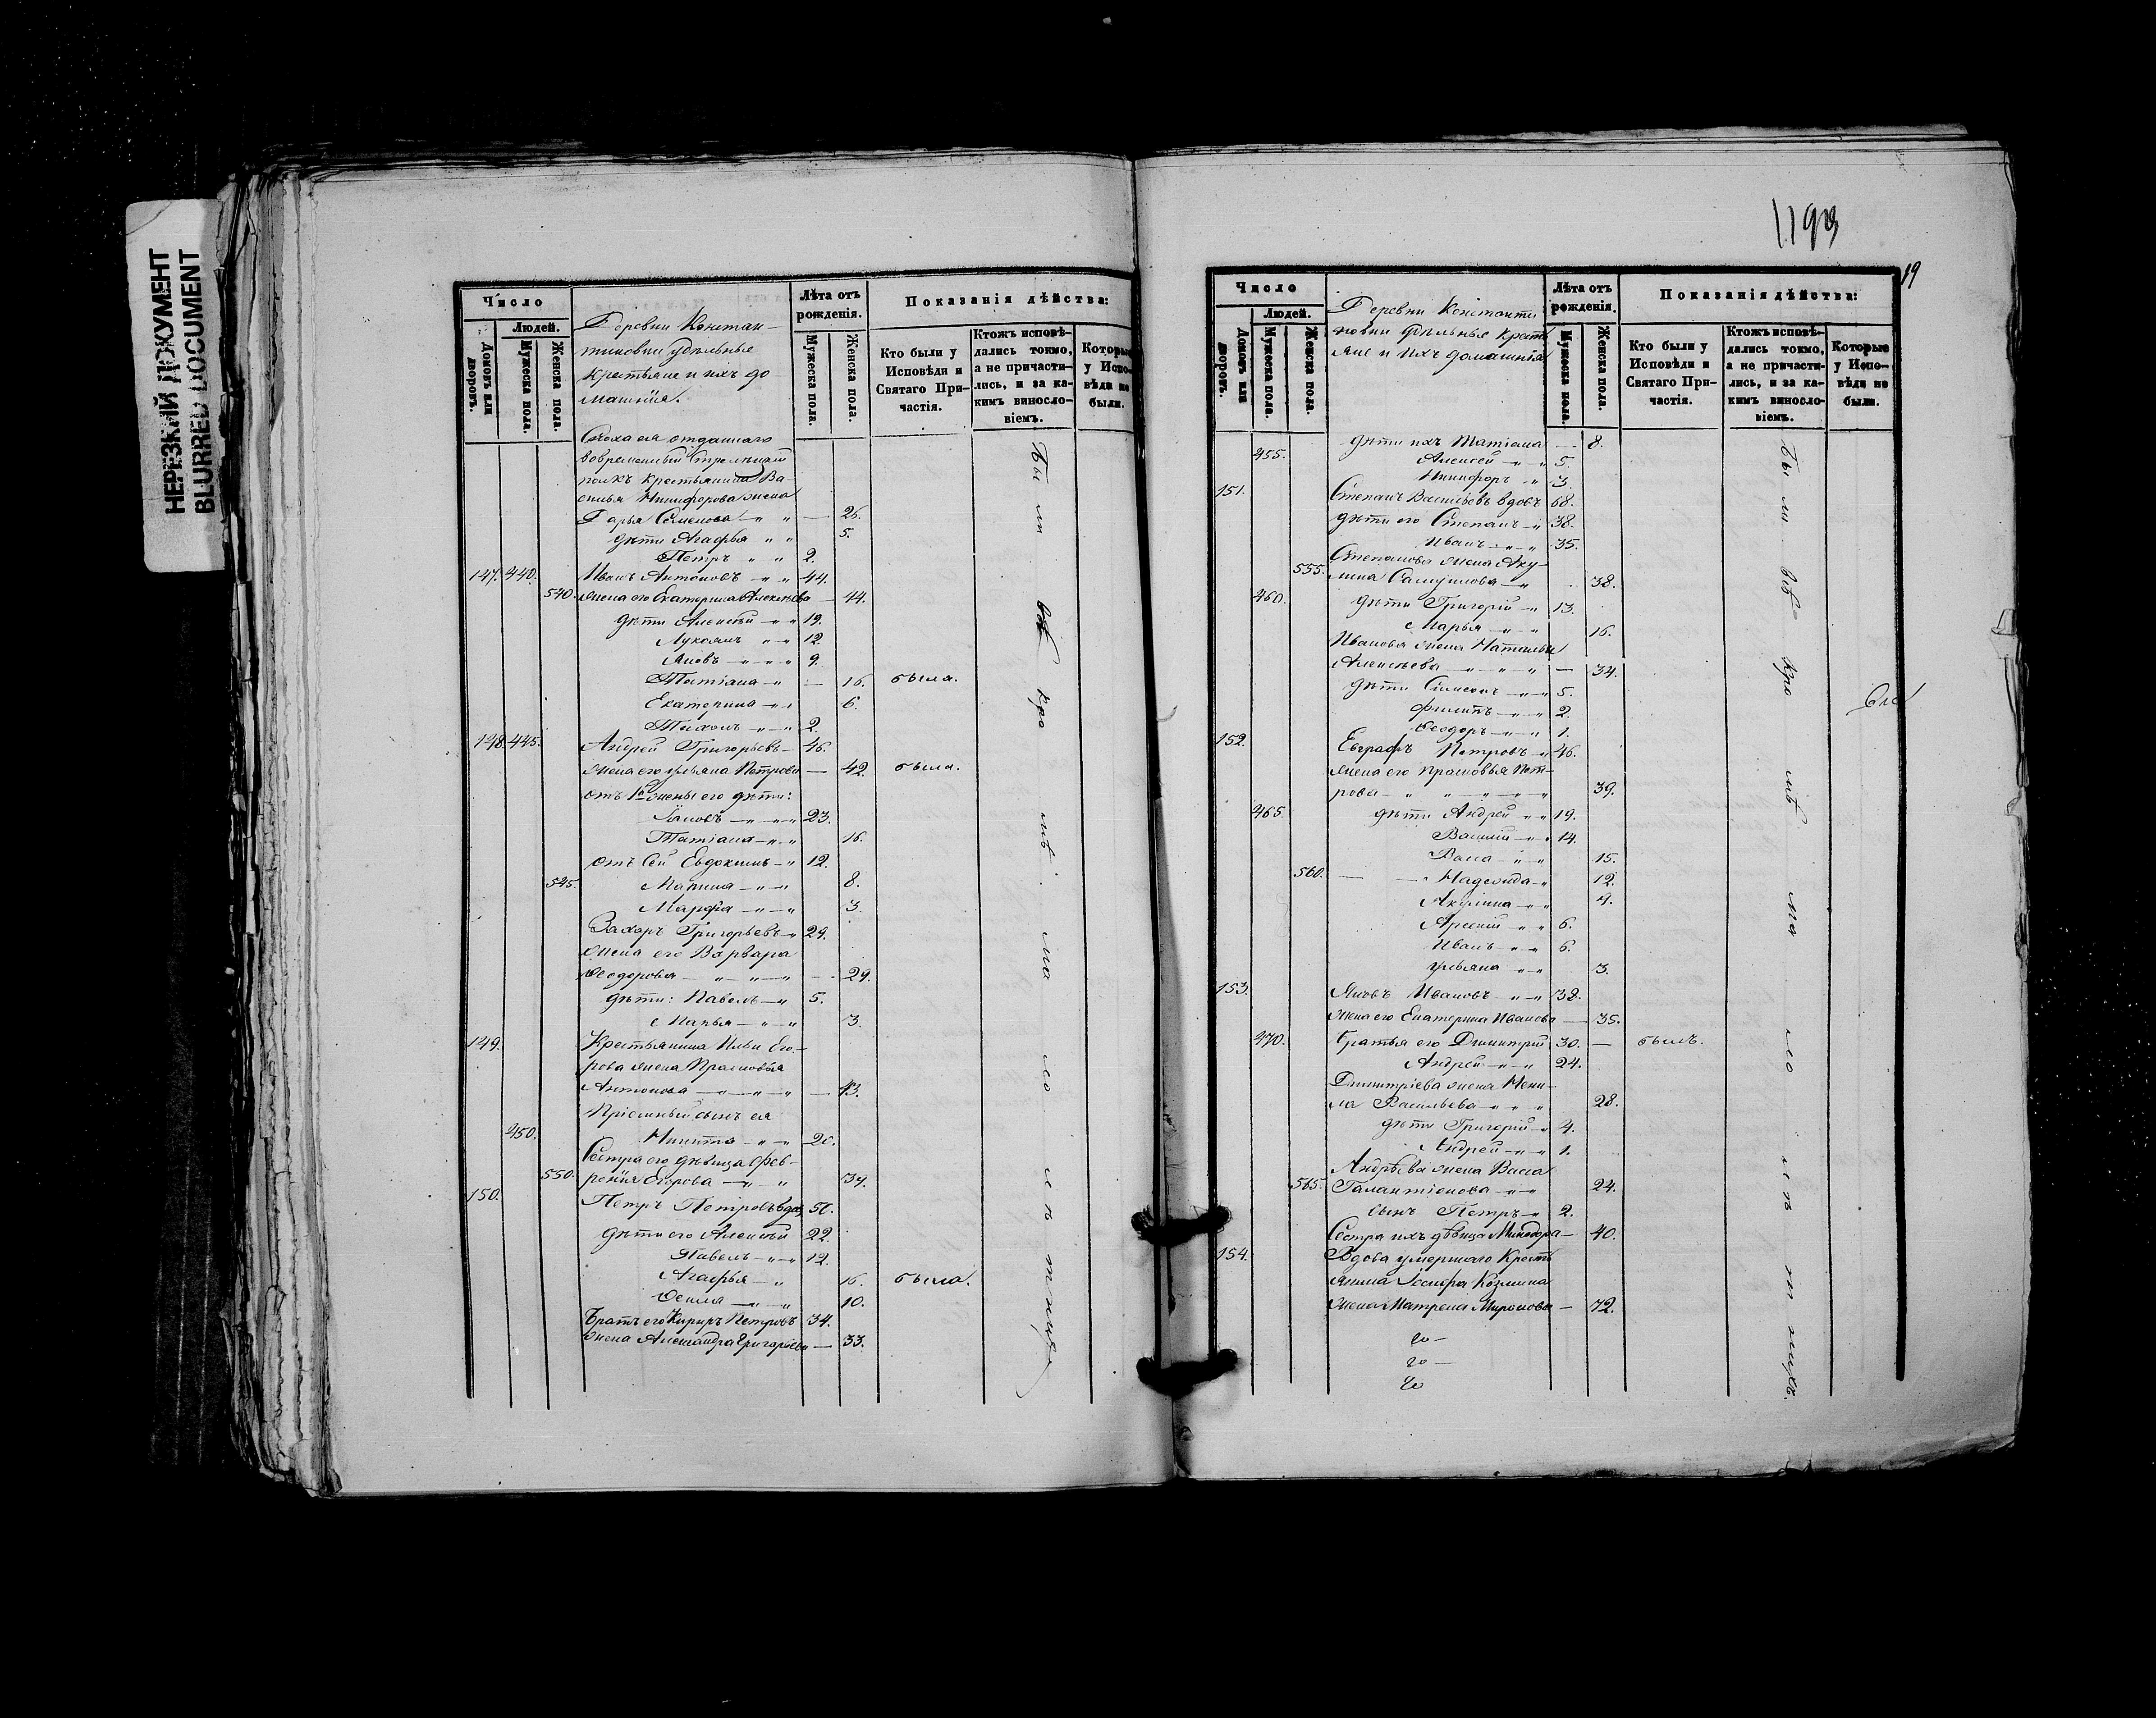 НЕРЕЗКИЙ ДОКУМЕНТ
BLURRED DOCUMENT
Число
Людей.
Домовъ или дворовъ.
Мужеска пола.
Женска пола.
Деревни Констан-
тиновки удѣльные
крестьяне и ихъ до
машнія.
Лѣта отъ рожденія.
Мужеска пола.
Женска пола.
Показанія дѣйства:
Кто были у Исповѣди и Святаго При-частія.
Ктожъ исповѣ-дались токмо, а не причасти-лись, и за ка-кимъ винослo-віемъ.
Которые у Испо-вѣди не были.
Сноха ея отданнаго
вовременный Стрелецкій
полкъ крестьянина Ва-
силья Никифорова жена
Дарья Семенова — 26.
дѣти Агафья 5.
Петръ 2.
147. 440. Иванъ Антоновъ 44.
540. жена его Екатерина Алексѣева — 44.
дѣти Алексѣй 19.
Лукоянъ 12.
Яковъ 9.
Татіана — 16. была.
Екатерина 6.
Тихонъ 2.
148. 445. Андрей Григорьевъ 46.
жена его Ульяна Петрова — 42. была.
отъ 1й жены его дѣти:
Іаковъ 23.
Татіана 16.
отъ сей Евдокимъ 12.
545. Марина 8.
Марфа 3.
Захаръ Григорьевъ 29.
жена его Варвара
Ѳеодорова — 29.
дѣти: Павелъ 5.
Марья 3.
149. Крестьянина Ильи Его-
рова жена Прасковья
Антонова — 43.
Пріемный сынъ ея
450. Никита 20.
Сестра его дѣвица Фев-
550. ронія Егорова 39.
150. Петръ Петровъ вдов. 50.
дѣти его Алексѣй 22.
Павелъ 12.
Агафья 16. была.
Ѳекла 10.
Братъ его Киръ Петровъ 34.
жена Александра Григорьева — 33.
Бы ли всѣ кро мѣ ма ло лѣ тнихъ
1193
19
Число
Людей.
Домовъ или дворовъ.
Мужеска пола.
Женска пола.
Деревни Константи
новки удѣльные крестья
яне и ихъ домашнія
Лѣта отъ рожденія.
Мужеска пола.
Женска пола.
Показанія дѣйства:
Кто были у Исповѣди и Святаго При-частія.
Ктожъ исповѣ-дались токмо, а не причасти-лись, и за ка-кимъ винослo-віемъ.
Которые у Испо-вѣди не были.
дѣти ихъ Татіана — 8.
455. Алексѣй 5.
Никифоръ 3.
151. Степанъ Васильевъ вдовъ 68.
дѣти его Степанъ 38.
Иванъ 35.
Степанова жена Аку-
555. лина Самуилова 38.
460. дѣти Григорій 13.
Марья 16.
Иванова жена Наталья
Алексѣева — 34.
дѣти Симеонъ 5.
Филипъ 2.
Ѳеодоръ 1.
152. Евграфъ Петровъ 46.
жена его Прасковья Пет-
рова 39.
465. дѣти Андрей 19.
Василій 14.
Васса 15.
560. Надежда 12.
Акулина 9.
Арсеній 6.
Иванъ 6.
Ульяна 3.
153. Яковъ Ивановъ 38.
жена его Екатерина Иванова — 35.
470. братья его Димитрій 30. — былъ.
Андрей 24.
Димитріева жена Неони-
ла Васильева 28.
дѣти Григорій 4.
Андрей 1.
Андрѣева жена Васса
565. Галактіонова 24.
сынъ Петръ 2.
Сестра ихъ дѣвица Минодора — 40.
154. Вдова умершаго Кресть
янина Іосифа Козмина
жена Матрена Миронова — 72.
Бы ли всѣ кро мѣ ма ло лѣ тнихъ.